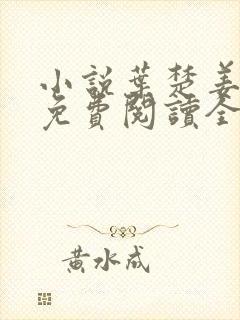 小説葉楚姜
免費閱讀全
黃水成